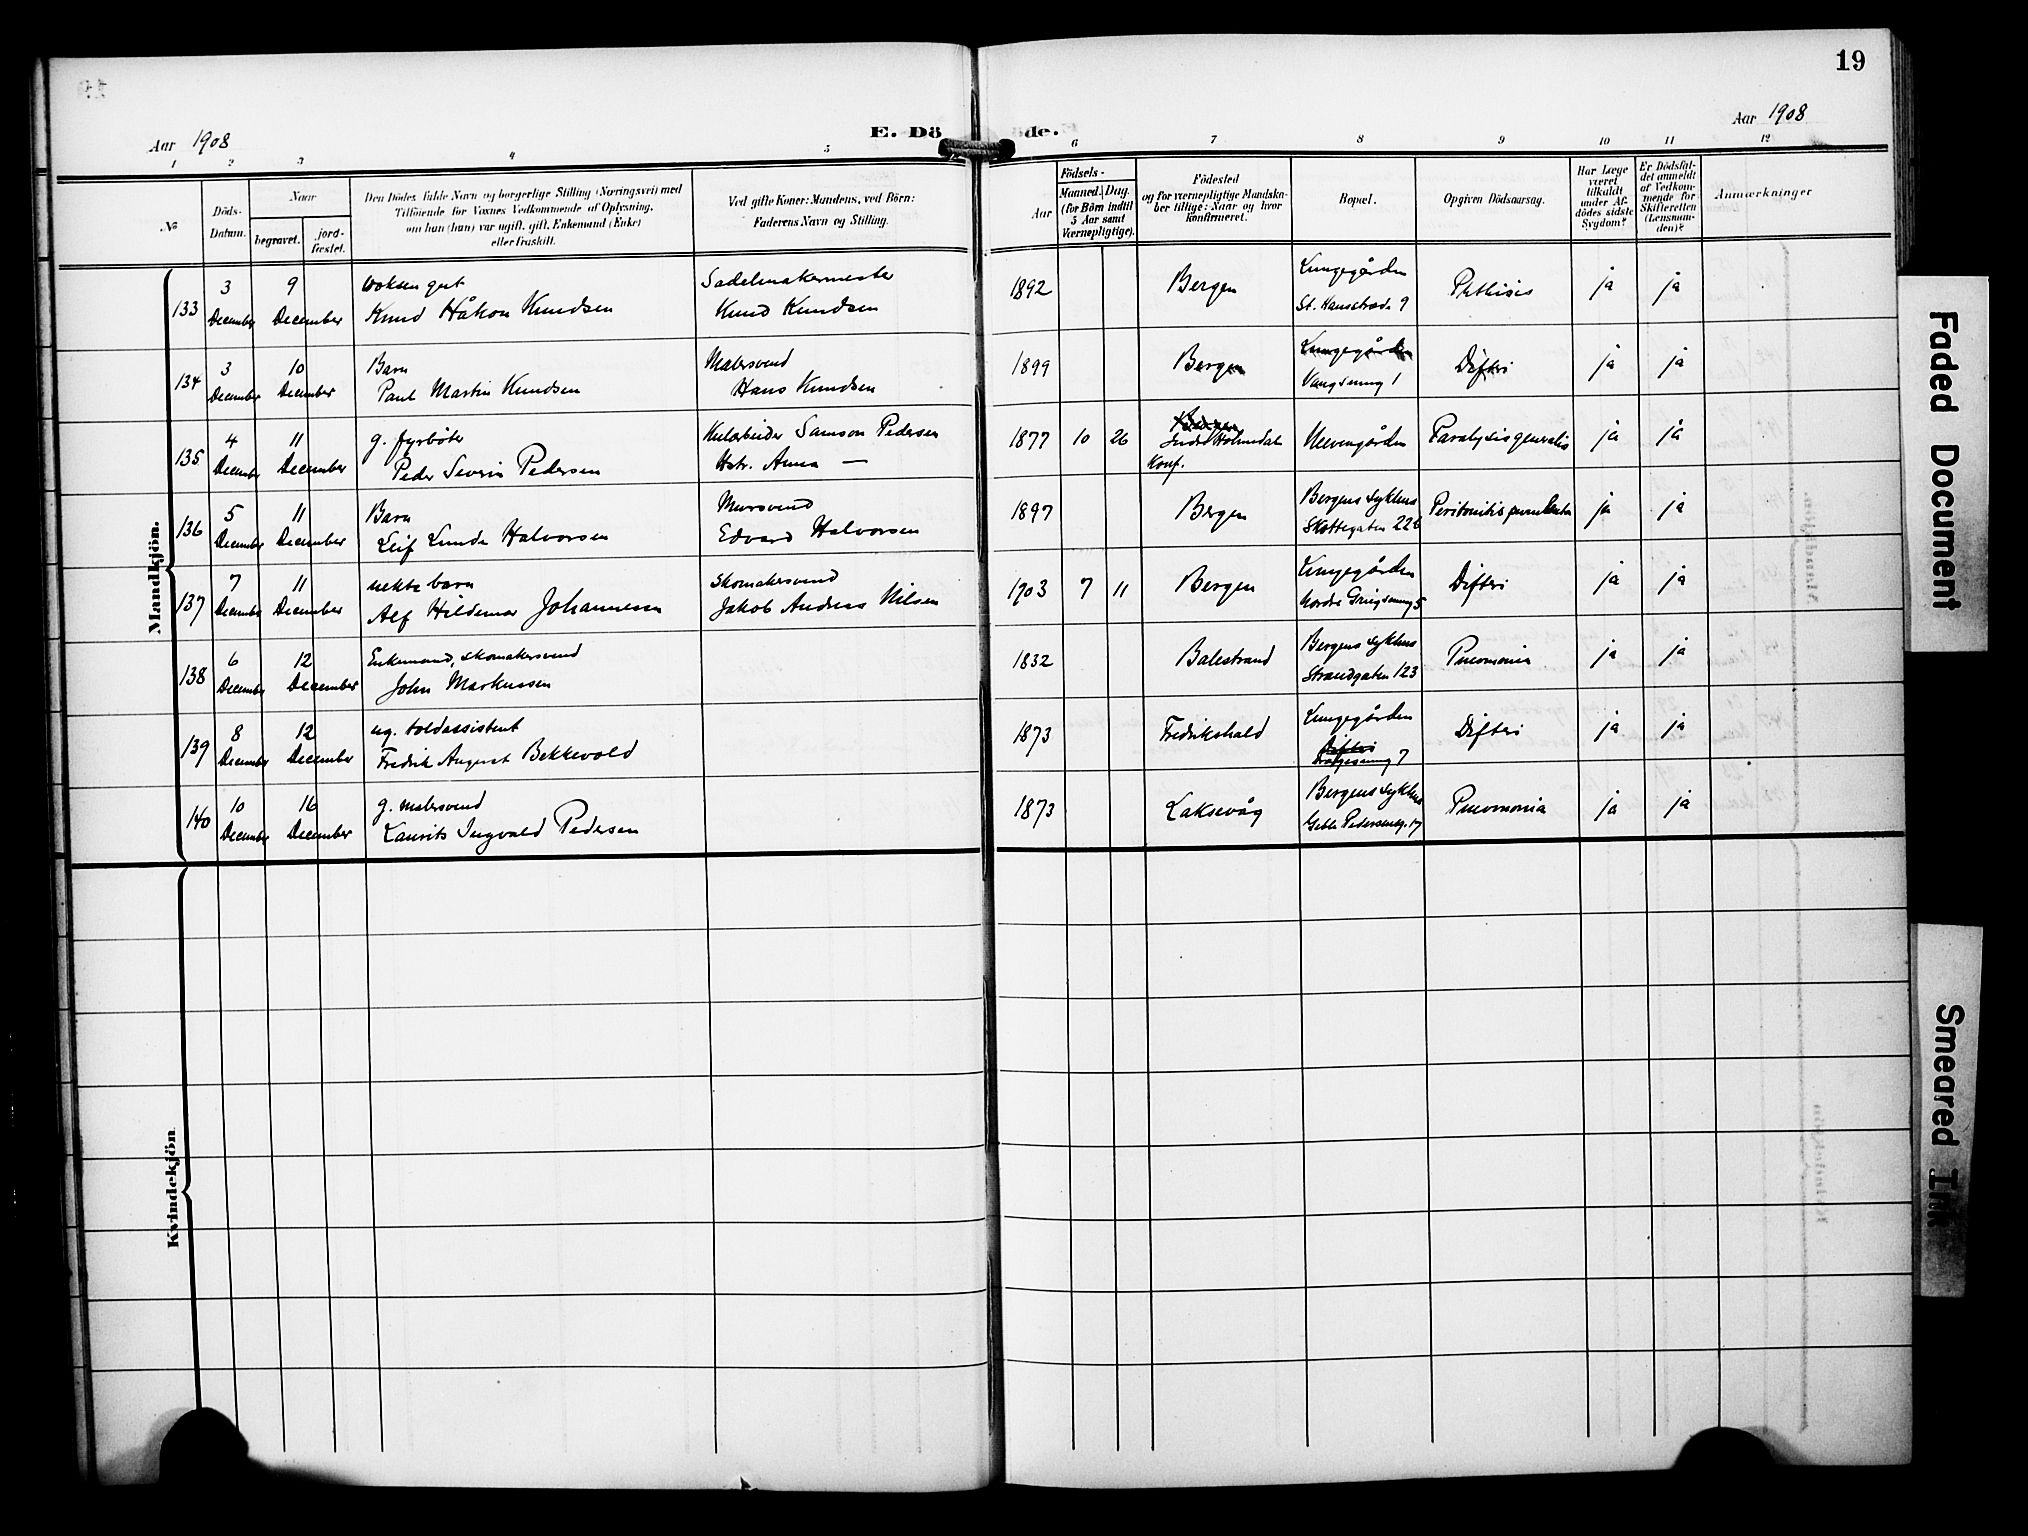 19
Aar 1908
E. Dö de.
Aar 1908
1 2 3 4 5 6 7 8 9 10 11 12
№
Döds-Datum.
Naar
begravet.
jord-fæstet.
Den Dödes fulde Navn og borgerlige Stilling (Næringsvei) med
Tilföiende for Voxnes Vedkommende af Oplysning,
om han (hun) var ugift, gift, Enkemand (Enke)
eller fraskilt.
Ved gifte Koner: Mandens, ved Börn:
Faderens Navn og Stilling.
Födsels-
Aar
Maaned. Dag.
(for Börn indtil
5 Aar samt
Værnepligtige).
Födested
og for værnepligtige Mandska-
ber tillige: Naar og hvor
konfirmeret.
Bopæl.
Opgiven Dödsaarsag.
Har Læge
været
tilkaldt
under Af-
dödes sidste
Sygdom?
Er Dödsfal-
det anmeldt
af Vedkom-
mende for
Skifteretten
(Lensman-
den)?
Anmærkninger
Mandkjön.
133 3 December 9 December voksen gut Knud Håkon Knudsen Sadelmakermester Knud Knudsen 1892 Bergen Lungegården St. Hansstræde 9 Phthisis ja ja
134 3 December 10 December Barn Paul Martin Knudsen Malersvend Hans Knudsen 1899 Bergen Lungegården 1 Difteri ja ja
135 4 December 11 December g. fyrbøter Peder Severin Pedersen Samson Pedersen Hstr. Anna — 1877 10 26 Bergen Indre Holmedal Konf. Neevengården Paralysis generalis ja ja
136 5 December 11 December Barn Leif Lunde Halvorsen Mursvend Edvard Halvorsen 1897 Bergen Bergens sykehus Skottegaten 22b Peritonitis purulenta ja ja
137 7 December 11 December uekte barn Alf Hildemar Johannessen skomakersvend Jakob Andreas Nilsen 1903 7 11 Bergen Lungegården Nordre 5 Difteri ja ja
138 6 December 12 December Enkemand, skomakersvend John Markussen 1832 Balestrand Bergens sykehus Strandgaten 123 Pneumonia ja ja
139 8 December 12 December ug. toldassistent Fredrik August Bekkevold 1873 Fredrikshald Lungegården Difteri 7 Difteri ja ja
140 10 December 16 December g. malersvend Laurits Ingvald Pedersen 1873 Laksevåg Bergens sykehus Geble Pedersensg. 17 Pneumonia ja ja
Kvindekjön
Faded Document
Smeared Ink